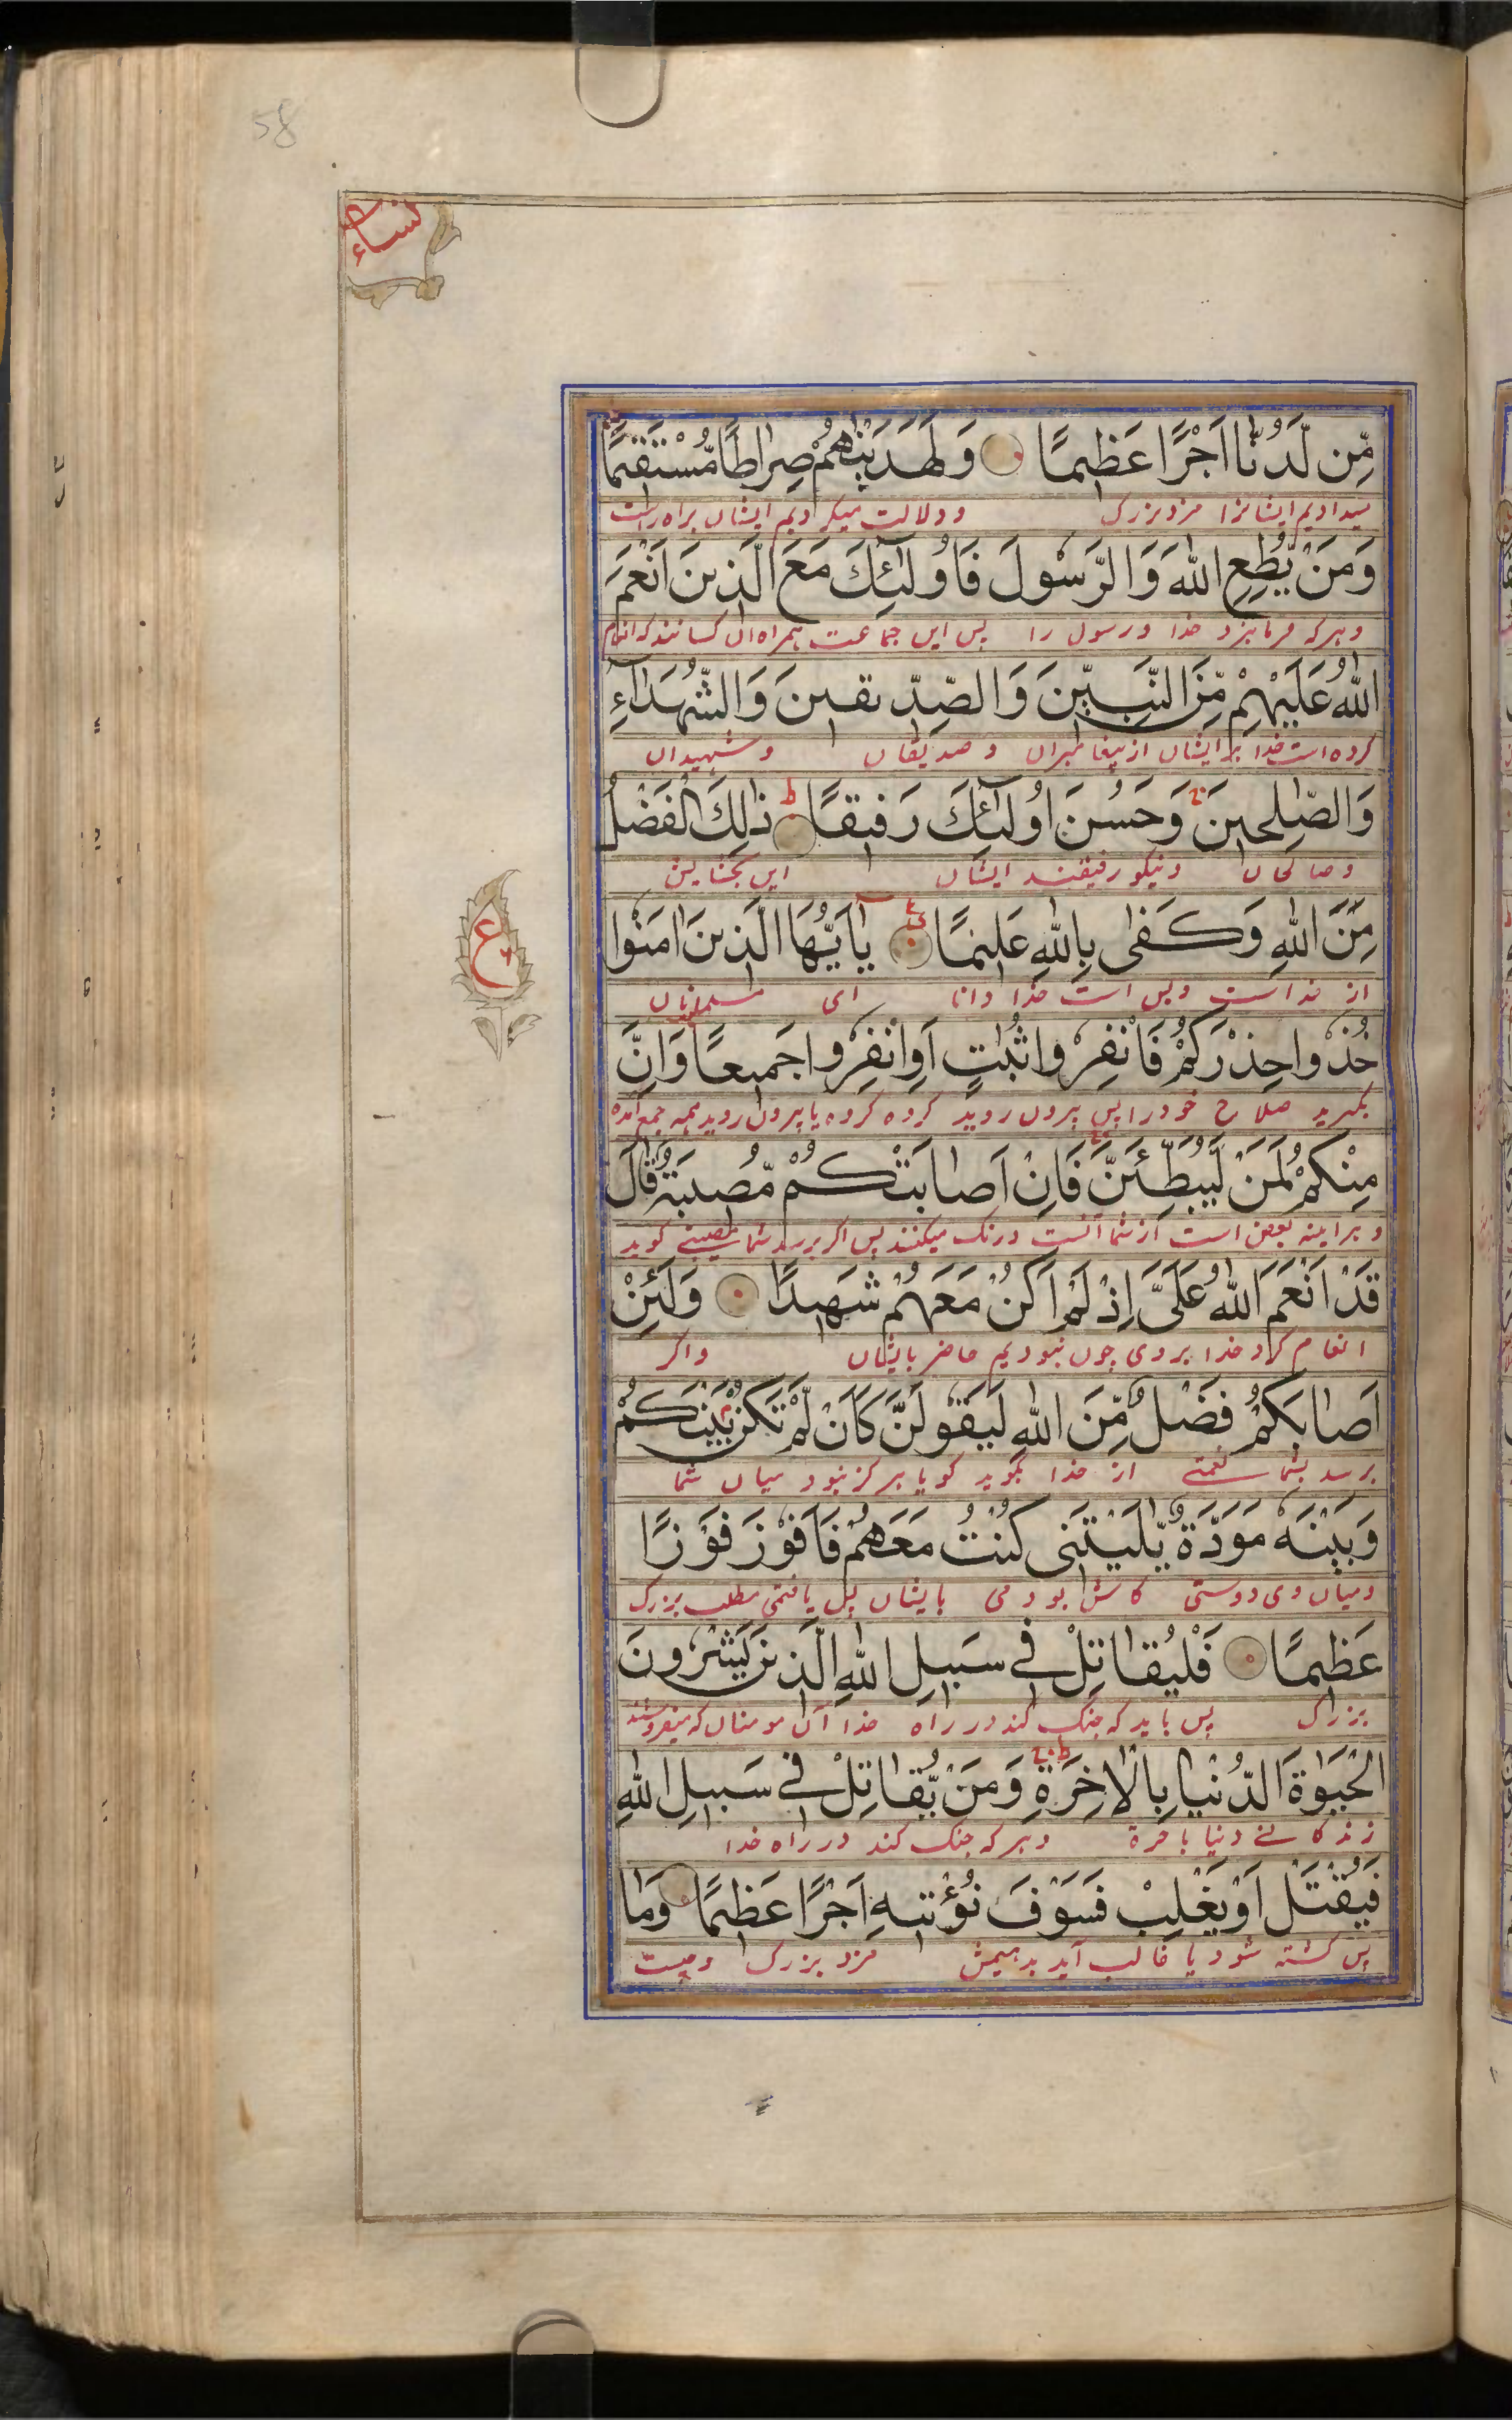 58
نساء
مِّن لَّدُنَّا اَجْرًا عَظِيمًا وَلَهَدَيْنٰهُمْ صِرَاطًا مُّسْتَقِيمًا
میدادیم ایشانرا مزد بزرک و دلالت میکردیم ایشان براه راست
وَمَنْ يُّطِعِ اللّٰهَ وَالرَّسُوْلَ فَاُولٰٓئِكَ مَعَ الَّذِينَ اَنْعَمَ
و هر که فرمابرد خدا و رسول را پس این جماعت همراه ان کسانند که انعام
اللّٰهُ عَلَيْهِمْ مِّنَ النَّبِيّٖنَ وَالصِّدِّيقِينَ وَالشُّهَدَآءِ
کرده است خدا بر ایشان از پیغامبران و صدیقان و شهیدان
وَالصّٰلِحِينَ ۚ وَحَسُنَ اُولٰٓئِكَ رَفِيقًا ط ذٰلِكَ الْفَضْلُ
و صالحان و نیکو رفیقند ایشان این بخشایش
مِّنَ اللّٰهِ وَكَفٰى بِاللّٰهِ عَلِيْمًا يٰٓاَيُّهَا الَّذِينَ اٰمَنُوْا
ع
از خداست و بس است خدا دانا ای مسلمانان
خُذُوا حِذْرَكُمْ فَانْفِرُوا ثُبَاتٍ اَوِانْفِرُوا جَمِيعًا وَاِنَّ
بکیرید صلاح خود را پس بیرون روید کروه کروه یا بیرون روید همه جمع آمده
مِنْكُمْ لَمَنْ لَّيُبَطِّئَنَّ فَاِنْ اَصَابَتْكُمْ مُّصِيبَةٌ قَالَ
و هراینه بعض است از شما آنست درنک میکنند پس اکر برسد شما مصیبتی کوید
قَدْ اَنْعَمَ اللّٰهُ عَلَىَّ اِذْ لَمْ اَكُنْ مَعَهُمْ شَهِيدًا وَلَئِنْ
انعام کرد خدا بر وی چون نبودیم حاضر با یشان و اکر
اَصَابَكُمْ فَضْلٌ مِّنَ اللّٰهِ لَيَقُولَنَّ كَاَنْ لَّمْ تَكُنْ بَيْنَكُمْ
برسد بشما نعمتے از خدا بکوید کویا هرکز نبود میان شما
وَبَيْنَهٗ مَوَدَّةٌ يّٰلَيْتَنِى كُنْتُ مَعَهُمْ فَاَفُوْزَ فَوْزًا
و میان وی دوستی کاش بودمی با یشان پس یافتمی مطلب بزرک
عَظِيمًا فَلْيُقَاتِلْ فِى سَبِيلِ اللّٰهِ الَّذِينَ يَشْرُونَ
بزرک پس باید که جنک کند در راه خدا آن مومنان که میفروشند
الْحَيٰوةَ الدُّنْيَا بِالْاٰخِرَةِ ط وَمَنْ يُّقَاتِلْ فِى سَبِيلِ اللّٰهِ
زندکانے دنیا باخرة و هر که جنک کند در راه خدا
فَيُقْتَلْ اَوْ يَغْلِبْ فَسَوْفَ نُؤْتِيهِ اَجْرًا عَظِيمًا وَمَا
پس کشته شود یا غالب آید بدهیمش مزد بزرک و چیست